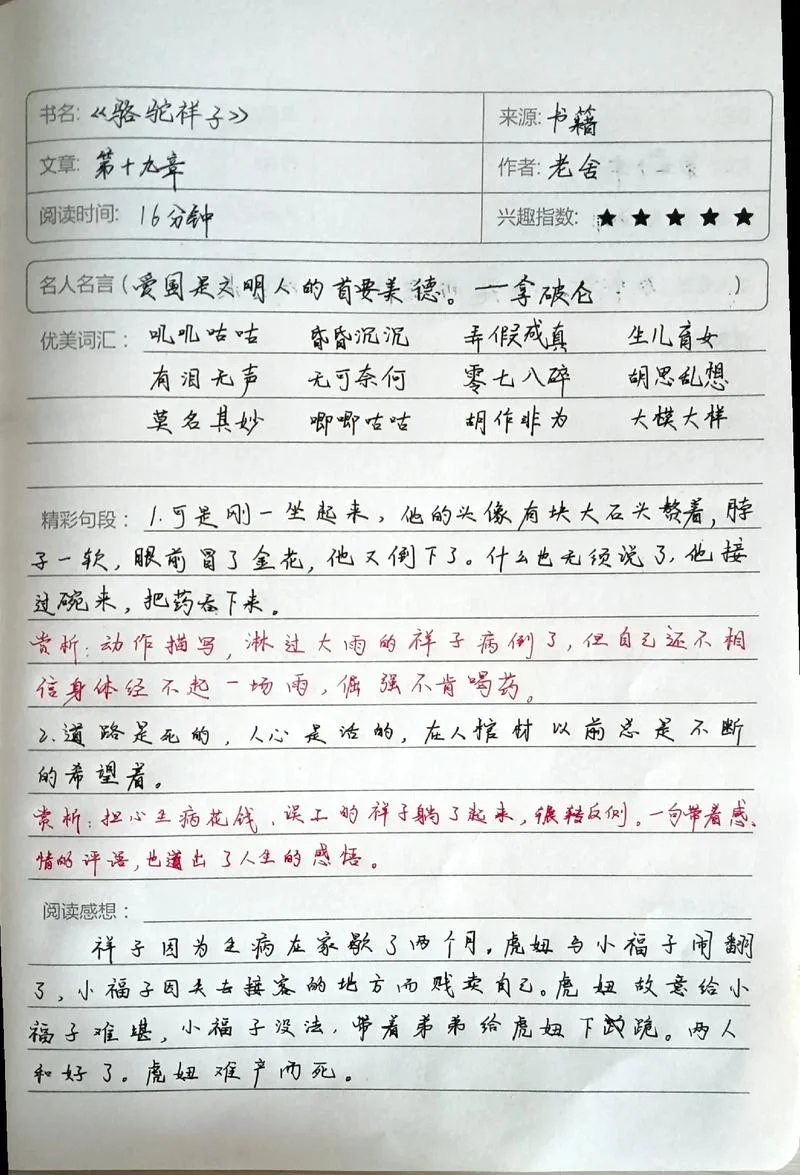 书名: 《骆驼祥子》 来源: 书籍
文章: 第十九章 作者: 老舍
阅读时间: 16分钟 兴趣指数: ★★★★★
名人名言(爱国是文明人的首要美德。一拿破仑)
优美词汇: 叽叽咕咕 昏昏沉沉 弄假成真 生儿育女
有泪无声 无可奈何 零七八碎 胡思乱想
莫名其妙 唧唧咕咕 胡作非为 大模大样
精彩句段: 1.可是刚一坐起来,他的头像有块大石头赘着,脖
子一软,眼前冒了金花,他又倒下了。什么也无须说了,他接
过碗来,把药吞下来。
赏析:动作描写,淋过大雨的祥子病倒了,但自己还不相
信身体经不起一场雨,倔强不肯喝药。
2.道路是死的,人心是活的,在人棺材以前总是不断
的希望着。
赏析:担心生病花钱、误工的祥子躺了起来,辗转反侧。一句带着感
情的评语,也道出了人生的感悟。
阅读感想:
祥子因为生病在家歇了两个月,虎妞与小福子闹翻
了,小福子因失去接客的地方而贱卖自己。虎妞故意给小
福子难堪,小福子没法,带着弟弟给虎妞下跪。两人
和好了。虎妞难产而死。